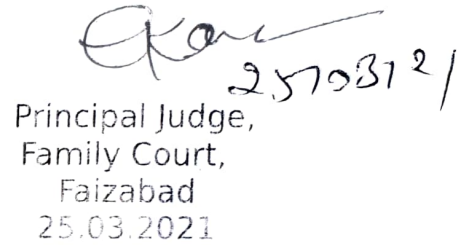 25/03/21
Principal Judge,
Family Court,
Faizabad
25.03.2021